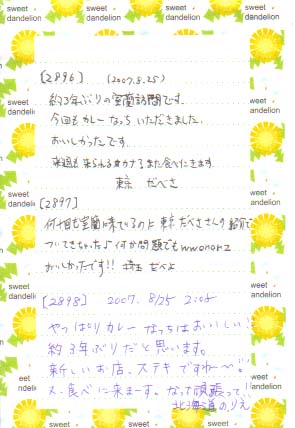 sweet dandelion
[2896] (2007.8.25)
約3年ぶりの室蘭訪問です。
今回もカレーなっち いただきました。
おいしかったです。
来週も来られる オカナ また食べにきます
東京 だべさ
[2897]
何十回も室蘭に来ているのに 東京だべささんの紹介で
ついてきちゃった♪ 何か問題でも wwononz
おいしかったです!! 埼玉 だべよ
[2898] 2007. 8/25 2:05
やっぱりカレーなっちはおいしい!
約3年ぶりだと思います。
新しいお店、ステキですね〜♪
又、食べに来まーす。なっち頑張って!!
北海道のりえ